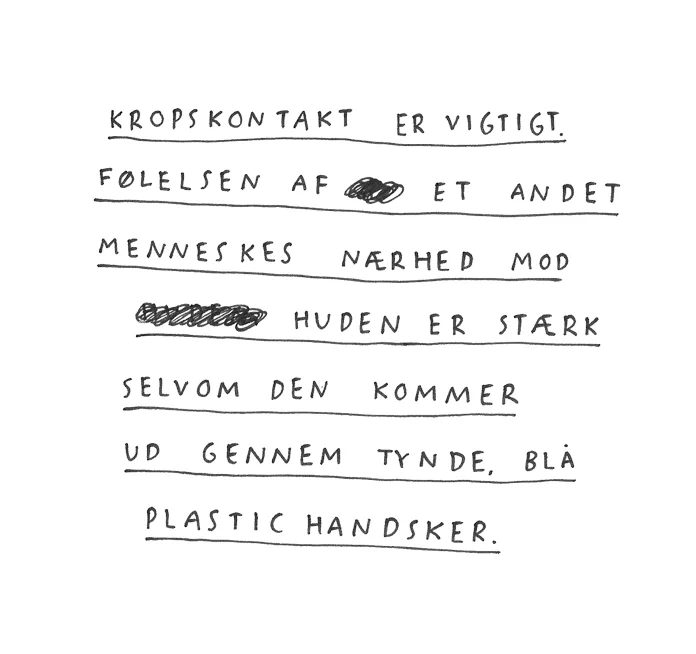 KROPSKONTAKT ER VIGTIGT.
FØLELSEN AF ET ANDET
MENNESKES NÆRHED MOD
HUDEN ER STÆRK
SELVOM DEN KOMMER
UD GENNEM TYNDE, BLÅ
PLASTIC HANDSKER.